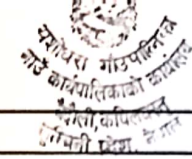 यशोधरा गाउँपालिका
गाउँ कार्यपालिकाको कार्यालय
कपिलवस्तु
लुम्बिनी प्रदेश, नेपाल